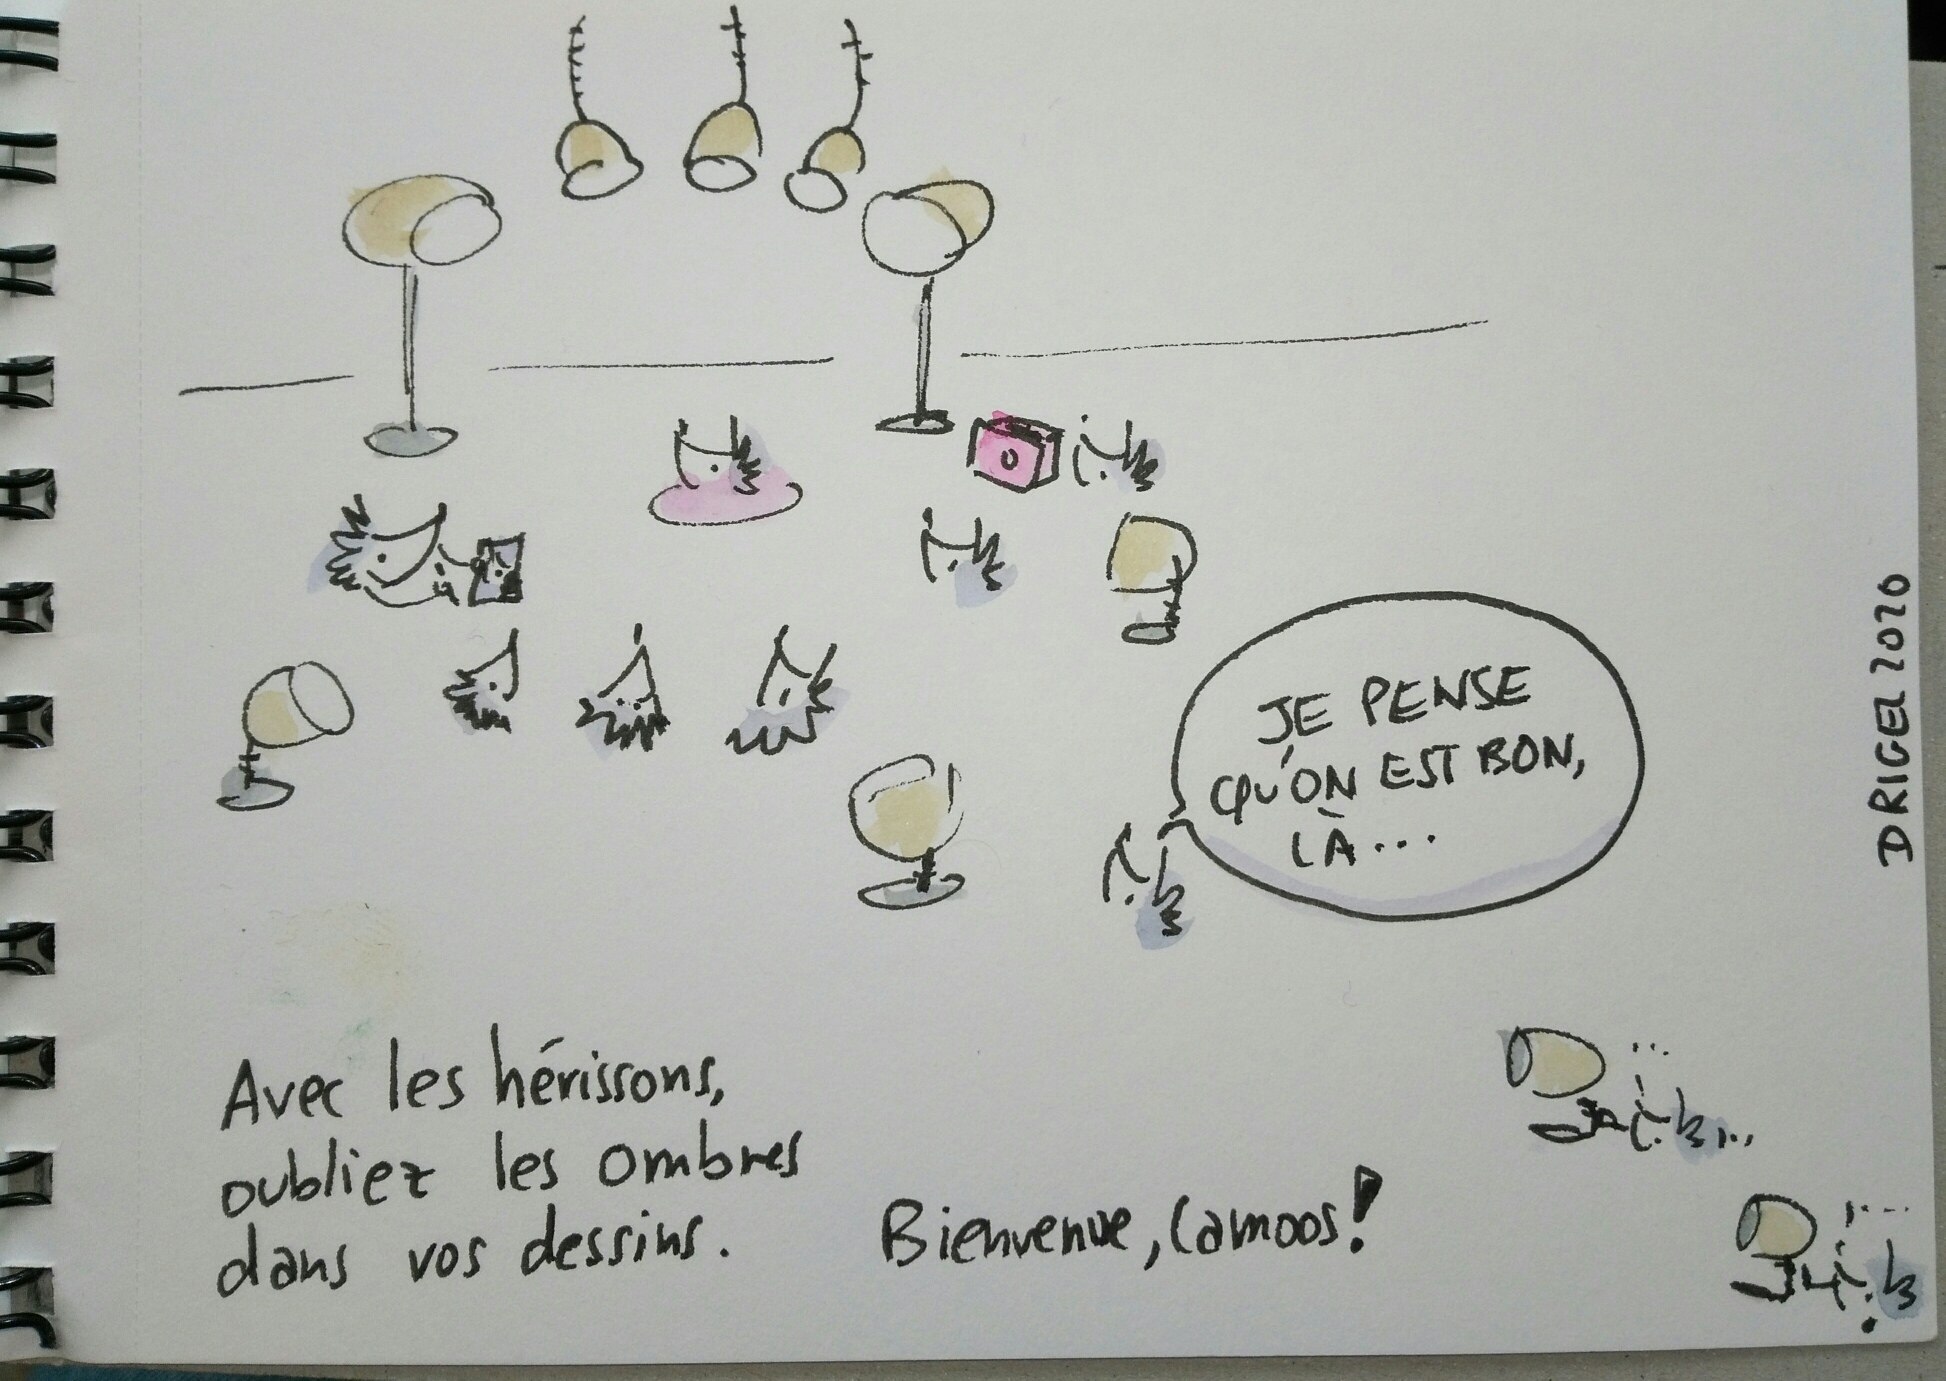 JE PENSE
QU'ON EST BON,
LÀ...
DRIGEL 2020
Avec les hérissons,
oubliez les ombres
dans vos dessins.
Bienvenue, Camoos!